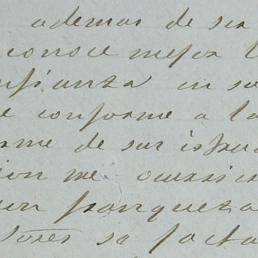 ademas de ser
conoce mejor l
nfianza en su
e conforme a la
rme de sus istru
ion me
un franqueza
tores se